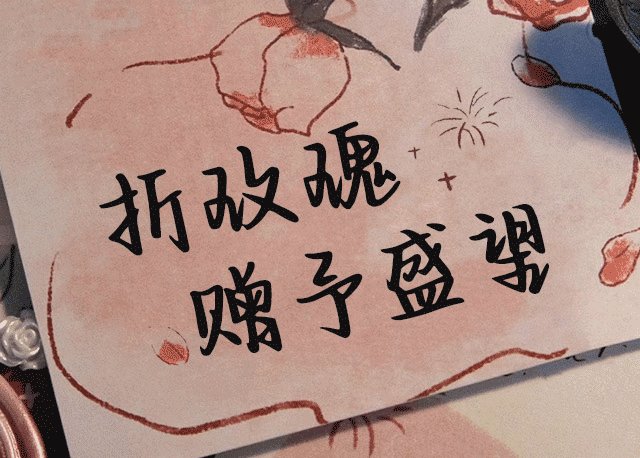 折玫瑰
赠予盛望